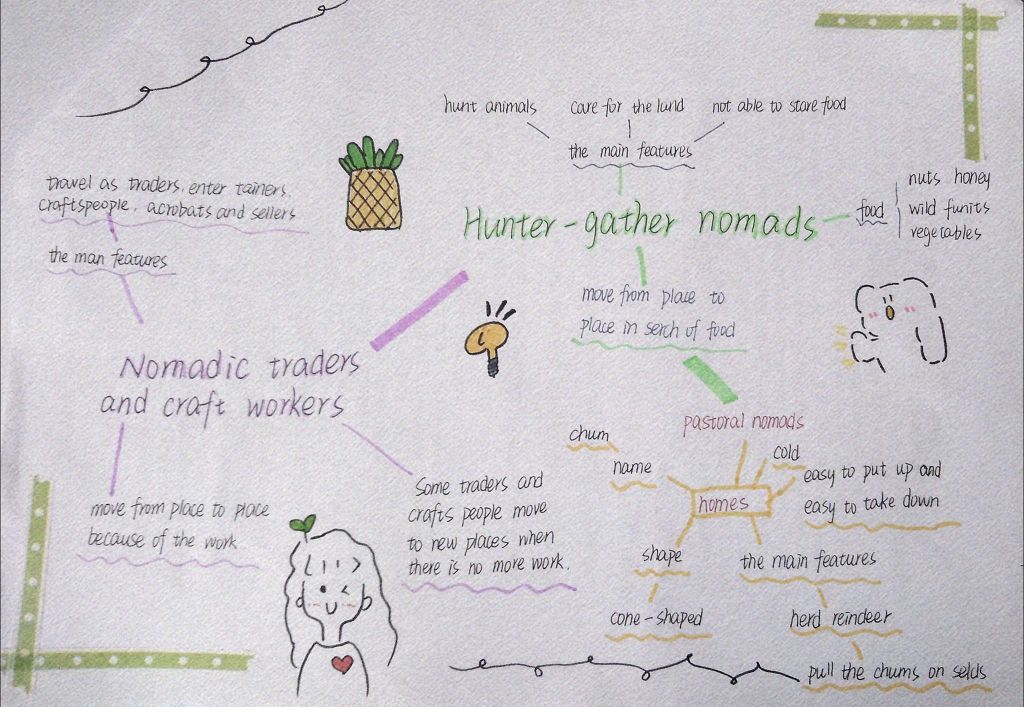 hunt animals
care for the lund
not able to store food
the main features
Hunter-gather nomads
food
nuts honey
wild funits
vegetables
move from place to
place in serch of food
travel as traders, enter tainers,
craftspeople, acrobats and sellers
the man features
Nomadic traders
and craft workers
move from place to place
because of the work
Some traders and
crafts people move
to new places when
there is no more work.
pastoral nomads
chum
name
cold
homes
easy to put up and
easy to take down
shape
cone-shaped
the main features
herd reindeer
pull the chums on selds